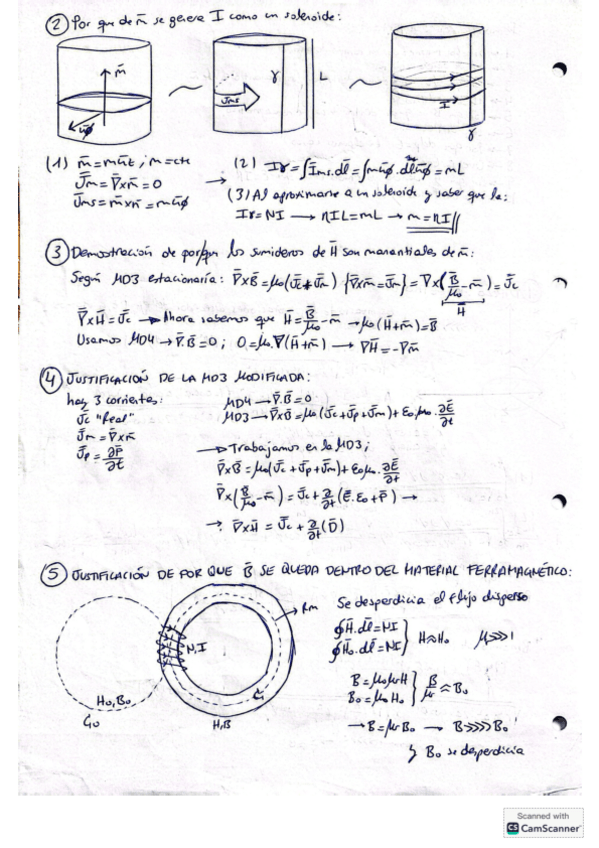 ② Por que de m̄ se genera I como un solenoide:
m̄
ūφ
J̄ms
γ
L
I
γ
(1) m̄ = m ūz ; m = cte
J̄m = ∇̄×m̄ = 0
J̄ms = m̄×n̄ = m ūφ
→ (2) Iγ = ∫J̄ms.dl̄ = ∫m ūφ.dl ūφ = mL
(3) Al aproximarse a un solenoide y saber que la:
Iγ = NI → nIL = mL → m = nI //
③ Demostración de porque los sumideros de H̄ son manantiales de m̄:
Según MD3 estacionaria: ∇̄×B̄ = μ₀(J̄c+J̄m) {∇̄×m̄ = J̄m} = ∇×(B̄/μ₀ - m̄) = J̄c
H̄
∇̄×H̄ = J̄c → Ahora sabemos que H̄ = B̄/μ₀ - m̄ → μ₀(H̄+m̄) = B̄
Usamos MD4 → ∇̄.B̄ = 0 ; 0 = μ₀.∇(H̄+m̄) → ∇H̄ = -∇m̄
④ JUSTIFICACIÓN DE LA MD3 MODIFICADA:
hay 3 corrientes:
J̄c "Real"
J̄m = ∇̄×m̄
J̄p = ∂P̄/∂t
MD4 → ∇̄.B̄ = 0
MD3 → ∇̄×B̄ = μ₀(J̄c+J̄p+J̄m) + ε₀.μ₀.∂Ē/∂t
→ Trabajamos en la MD3;
∇̄×B̄ = μ₀(J̄c+J̄p+J̄m) + ε₀μ₀.∂Ē/∂t
∇̄×(B̄/μ₀ - m̄) = J̄c + ∂/∂t (Ē.ε₀+P̄) →
→ ∇̄×H̄ = J̄c + ∂/∂t (D̄)
⑤ JUSTIFICACIÓN DE POR QUE B̄ SE QUEDA DENTRO DEL MATERIAL FERRAMAGNÉTICO:
Rm
N,I
H₀,B₀
C₀
C₁
H,B
Se desperdicia el flujo disperso
∮H̄.dl̄ = NI
∮H̄₀.dl̄ = NI
} H≈H₀ μ>>>1
B = μ₀μrH
B₀ = μ₀H₀
} B/μr ≈ B₀
→ B = μr B₀ → B>>>>B₀
↳ B₀ se desperdicia
Scanned with
CS CamScanner